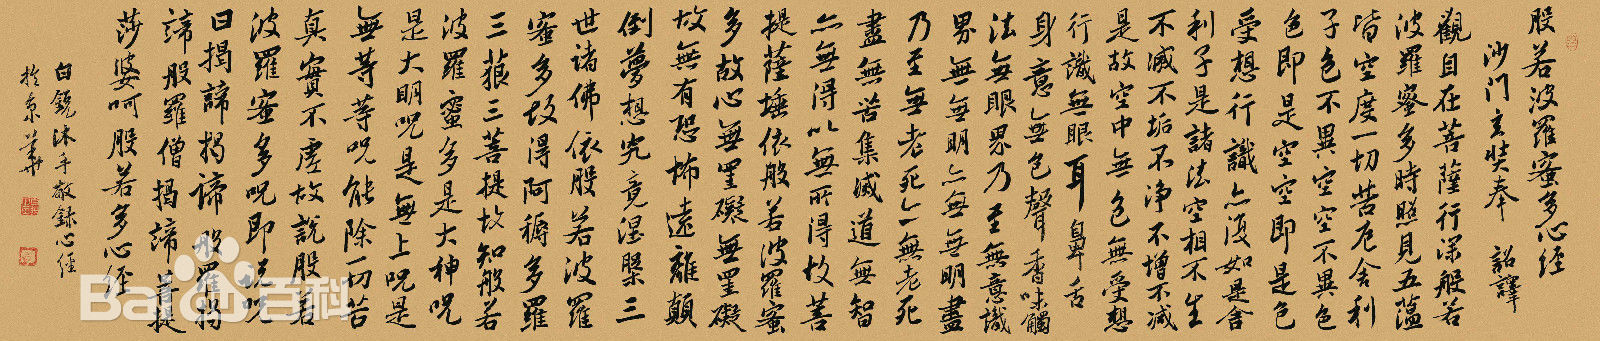 般若波羅蜜多心經
沙门玄奘奉 詔譯
觀自在菩薩行深般若
波羅蜜多時照見五蕴
皆空度一切苦厄舍利
子色不異空空不異色
色即是空空即是色
受想行識亦復如是舍
利子是諸法空相不生
不滅不垢不净不增不減
是故空中無色無受想
行識無眼耳鼻舌
身意無色聲香味觸
法無眼界乃至無意識
界無無明亦無無明盡
乃至無老死亦無老死
盡無苦集滅道無智
亦無得以無所得故菩
提薩埵依般若波羅蜜
多故心無罣礙無罣礙
故無有恐怖遠離顛
倒夢想究竟涅槃三
世諸佛依般若波羅
蜜多故得阿耨多羅
三藐三菩提故知般若
波羅蜜多是大神咒
是大明咒是無上咒是
無等等咒能除一切苦
真實不虛故説般若
波羅蜜多咒即説咒
曰揭諦揭諦般羅揭
諦般羅僧揭諦菩提
莎婆呵般若多心經
白鋭沐手敬錄心經
於京華
Baidu百科